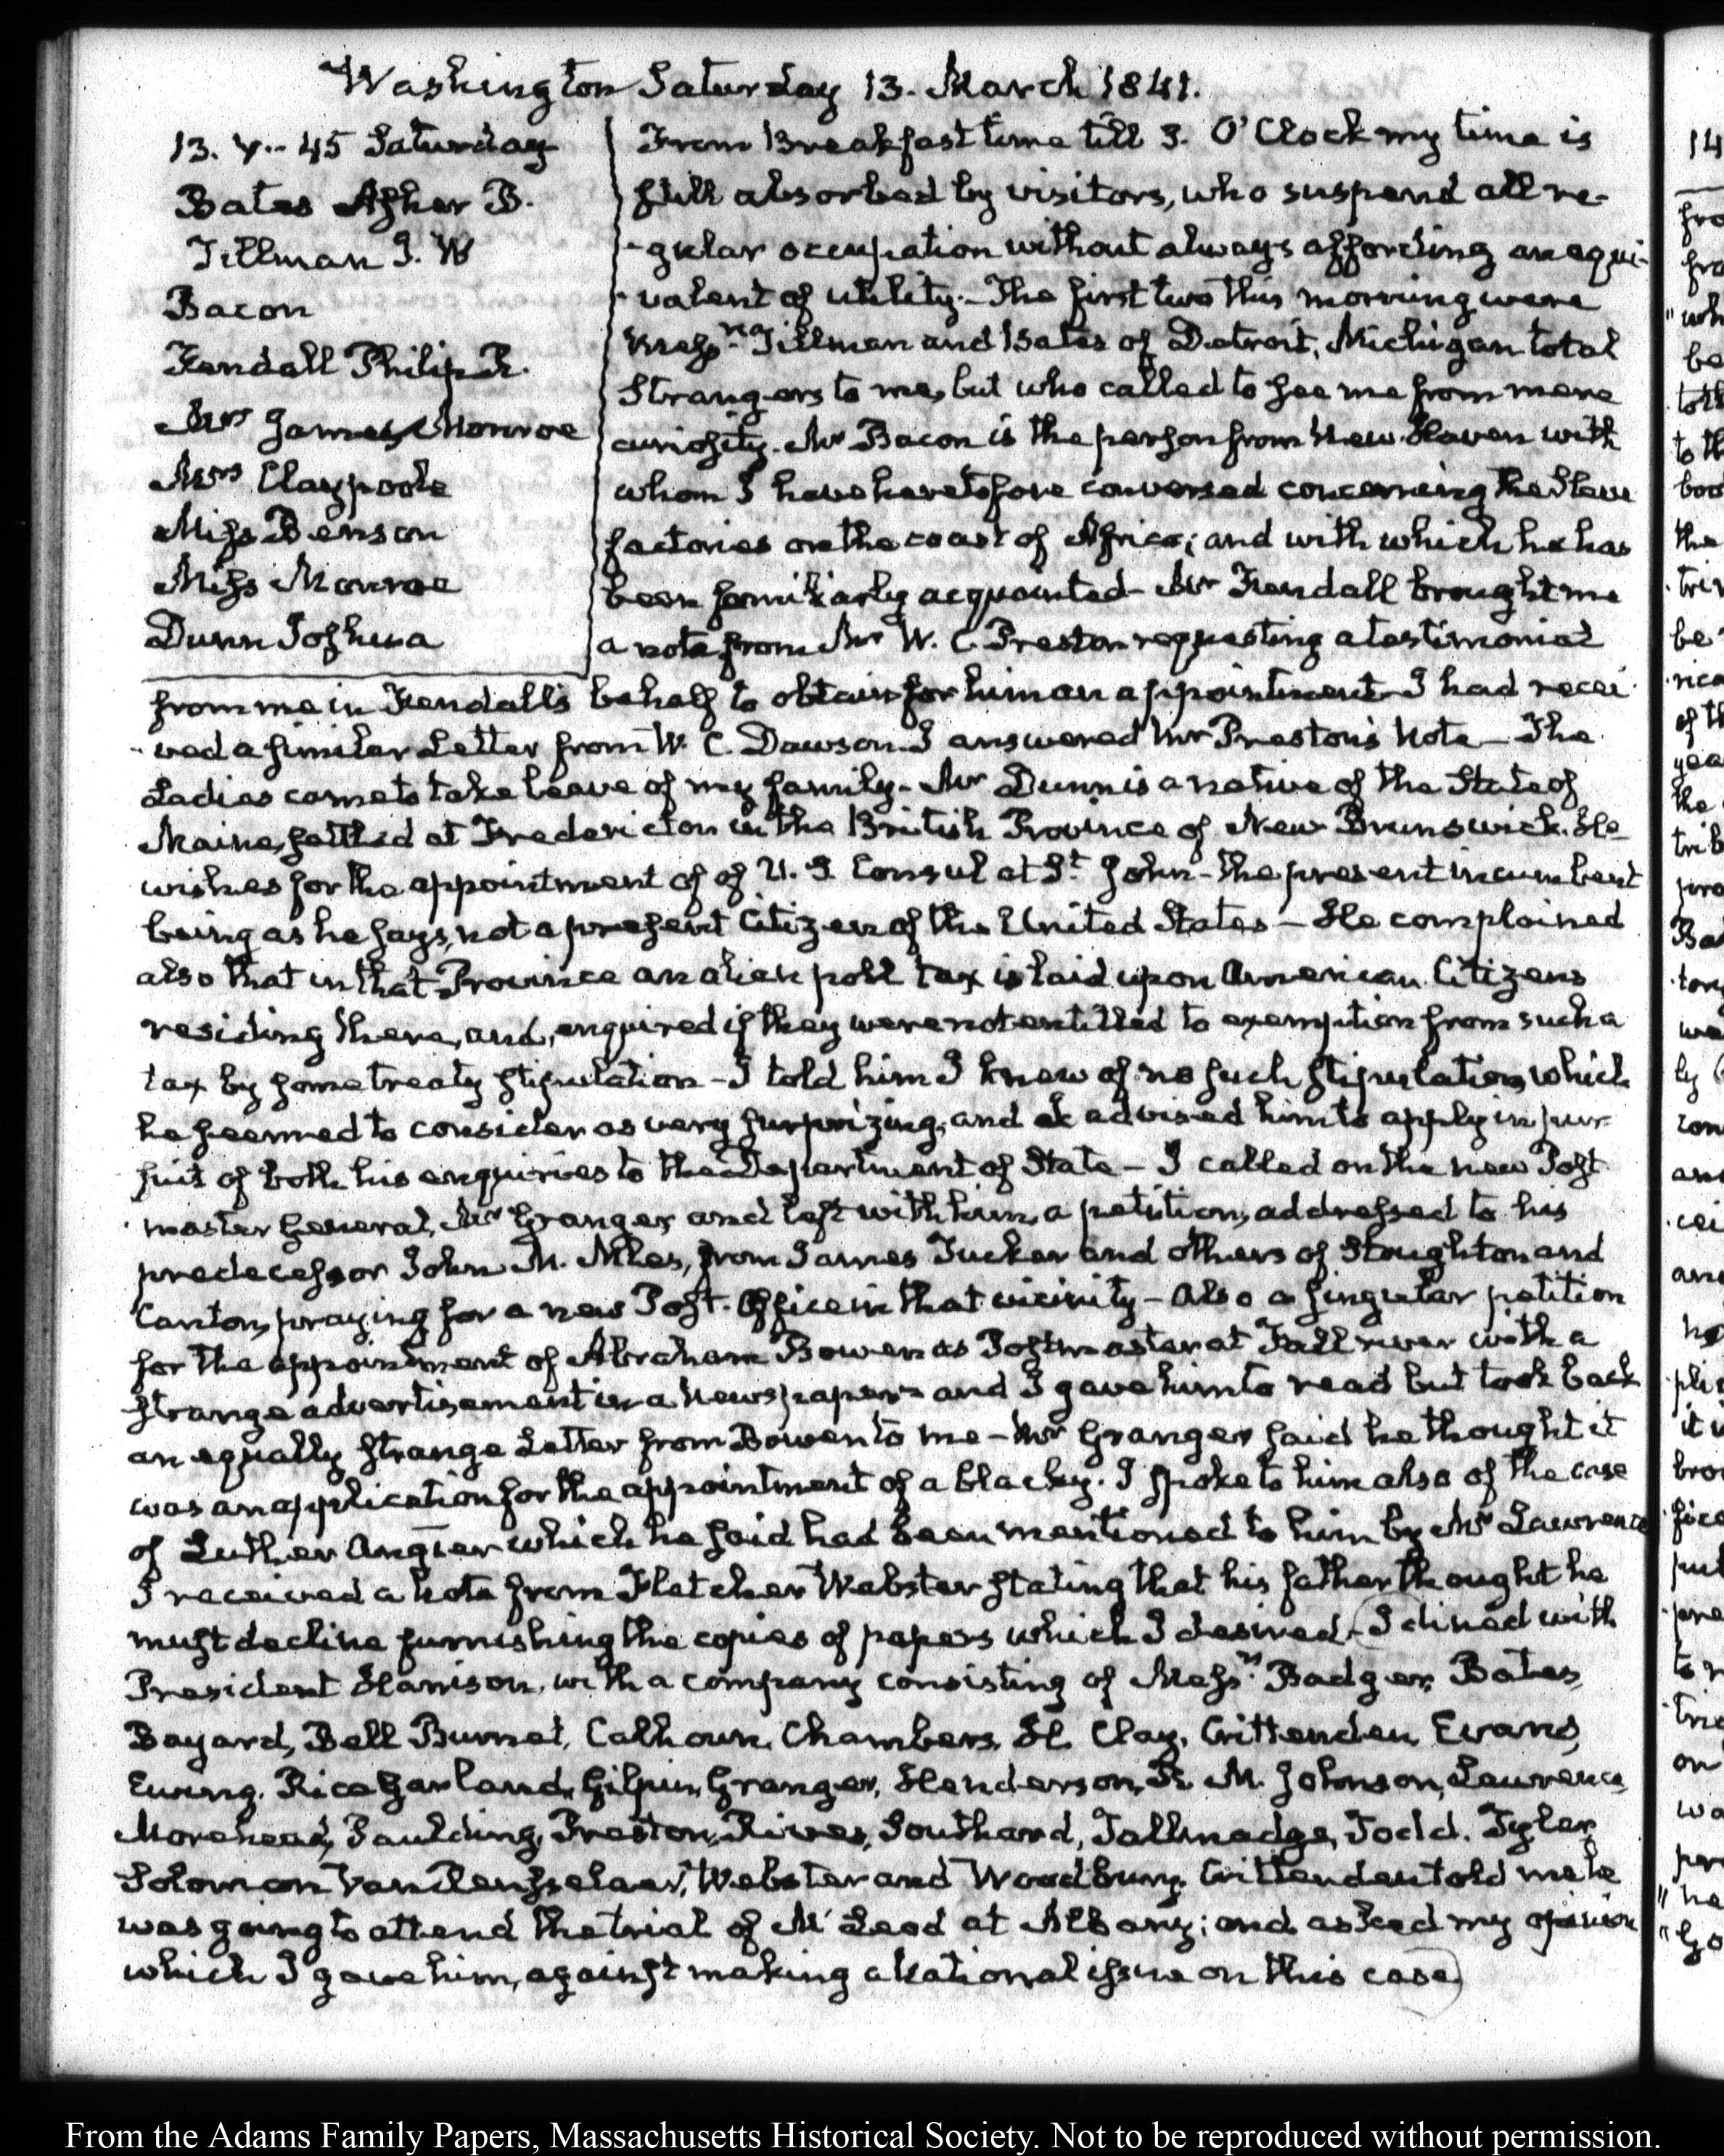 Washington Saturday 13. March 1841.
13. V.. 45 Saturday
Bates Asher B.
Tillman J. W
Bacon
Fendall Philip R.
Mr James Monroe
Mrs Claypoole
Miss Benson
Miss Monroe
Dunn Joshua
From Breakfast time till 3. O'Clock my time is
still absorbed by visitors, who suspend all re-
-gular occupation without always affording an equi-
-valent of utility. The first two this morning were
Messrs Tillman and Bates of Detroit, Michigan total
strangers to me, but who called to see me from mere
curiosity. Mr Bacon is the person from New-Haven with
whom I have heretofore conversed concerning the Slave
factories on the coast of Africa; and with which he has
been familiarly acquainted- Mr Fendall brought me
a note from Mr W. C. Preston requesting a testimonial
from me in Fendall's behalf to obtain for him an appointment- I had recei-
-ved a similar Letter from W. C. Dawson. I answered Mr Preston's Note- The
Ladies came to take leave of my family- Mr Dunn is a native of the State of
Maine, settled at Fredericton in the British Province of New-Brunswick. He
wishes for the appointment of of U. S. Consul at St John- the present incumbent
being as he says, not a present Citizen of the United States- He complained
also that in that Province an alien poll tax is laid upon American Citizens
residing there, and, enquired if they were not entitled to exemption from such a
tax by some treaty stipulation- I told him I knew of no such stipulation, which
he seemed to consider as very surprizing, and I advised him to apply in pur-
suit of both his enquiries to the Department of State- I called on the new Post
master General, Mr Granger and left with him, a petition, addressed to his
predecessor John M. Niles, from James Tucker and others of Stoughton and
Canton, praying for a new Post-Office in that vicinity- Also a singular petition
for the appointment of Abraham Bowen as Postmaster at Fall river with a
strange advertisement in a Newspaper- and I gave him to read but took back
an equally strange Letter from Bowen to me- Mr Granger said he thought it
was an application for the appointment of a blackey. I spoke to him also of the case
of Luther Angier which he said had been mentioned to him by Mr Lawrence
I received a Note from Fletcher Webster stating that his father thought he
must decline furnishing the copies of papers which I desired- I dined with
President Harrison, with a company consisting of Messrs Badger, Bates,
Bayard, Bell Burnet, Calhoun, Chambers, H. Clay, Crittenden, Evans,
Ewing, Rice Garland, Gilpin, Granger, Henderson, R. M. Johnson, Lawrence,
Morehead, Paulding, Preston, Rives, Southard, Tallmadge, Todd, Tyler,
Solomon Van Rensselaer, Webster and Woodbury. Crittenden told me he
was going to attend the trial of McLeod at Albany; and asked my opinion
which I gave him, against making a National issue on this case
From the Adams Family Papers, Massachusetts Historical Society. Not to be reproduced without permission.